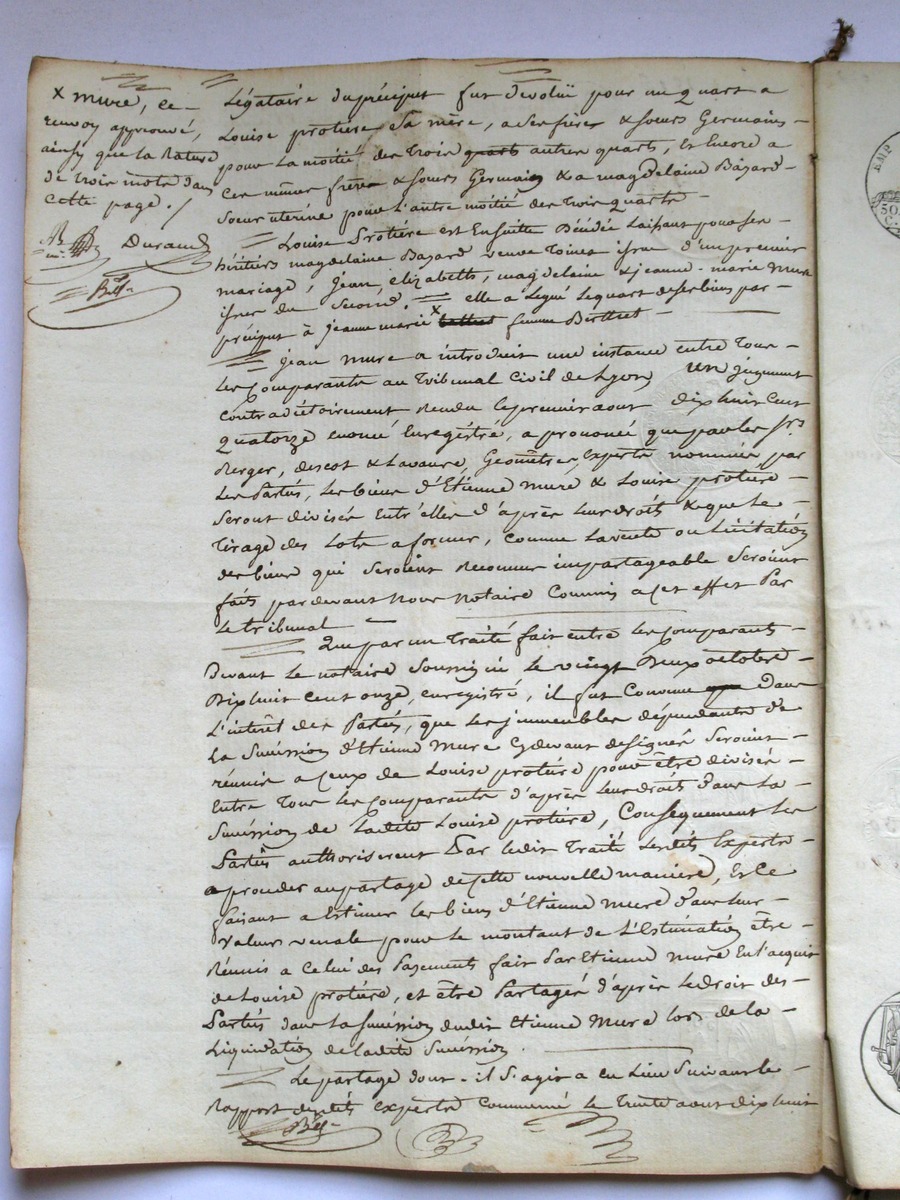 x mure, ce
renvoy approuvé,
ainsy que la Rature
de trois mots dans
cette page. /
Durand
Légataire du préciput fut dévolüe pour un quart a
Louise protiere sa mère, a ses frères & sœurs Germains
pour la moitié des trois quarts autres quarts, et Encore a
Ces mêmes frères & sœurs Germains & a magdelaine Bazard
sœur utérine pour l'autre moitié des trois quarts
Louise Protière est Ensuite Décédée laissant pour ses
héritiers magdelaine Bazard veuve Toines issue d'un premier
mariage, Jean, elizabeth, magdelaine & jeanne-marie mure
issus du second. = elle a Légué le quart de ses biens par
préciput à jeanne marie x femme Berthet
Jean mure a introduit une instance entre Tous
Les Comparants au Tribunal Civil de Lyon un jugement
contradictoirement Rendu le premier aout dix huit Cent
quatorze Enregistré, a prononcé que par les Srs
Berger, descot & Lavaure, Geomêtres, experts nommés par
Les Partiés, les biens d'Etienne mure & Louise protiere
seront divisés Entr'elles d'après leurs droits & que le
Tirage des Lots a former, comme la vente ou Licitation
des biens qui seroient Reconnus impartageable seroient
faits pardevant Nous Notaire Commis a cet effet Par
le tribunal
Que par un Traité fait entre les Comparants
Devant Le notaire soussigné le vingt Deux octobre
Dix huit Cent onze, enregistré, il fut Convenu Dans
L'intérêt des Partiés, que les immeubles dépendants de
La Succession d'Etienne Mure cydevant designés seroient
réunis a ceux de Louise protiére pour être divisés
Entre Tous les Comparants d'après leurs droits dans La
Succéssion de Ladite Louise protiére, Conséquemment Les
Partiés authoriserent Par ledit Traité lesdits Experts
a procéder au partage de cette nouvelle maniere, Et Ce
faisant a Estimer les biens d'Etienne mure d'aux leur
valeurs venale pour le montant de L'Estimation être
Réunis a Celui des Payements fait Par Etienne mure En l'acquit
de Louise protiére, et être Partagés d'après le droit des
Partiés dans La Succéssion dudit Etienne Mure lors de la
Liquidation de ladite Succéssion.
Le partage dont-il s'agit a eu Lieu Suivant le
Rapport desdits experts Commencé le Trente aout dix huit